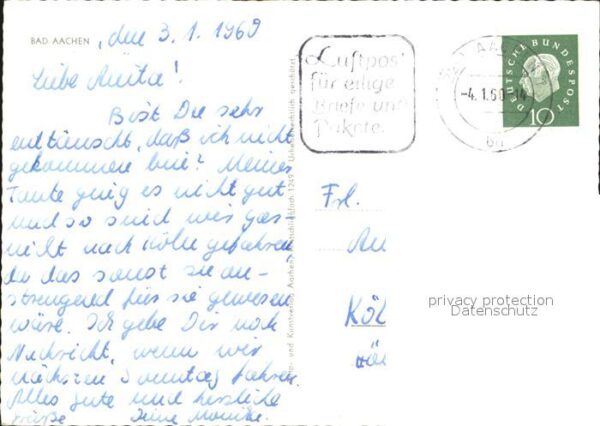 BAD AACHEN
, den 3. 1. 1960
Liebe Anita!
Bist Du sehr
enttäuscht, daß ich nicht
gekommen bin? Meiner
Tante ging es nicht gut
und so sind wir gar
nicht nach Köln gefahren
da das sonst zu an-
strengend für sie gewesen
wäre. Ich gebe Dir noch
Nachricht, wenn wir
nächsten Sonntag fahren.
Alles gute und herzliche
Grüße Deine Monika.
Luftpos
für eilige
Briefe und
Pakete.
AAC
-4.1.60-14
DEUTSCHE BUNDESPOST
10
- und Kunstverlag Aachen, Postschließfach 1249
Urheberrechtlich geschützt
Frl.
An
Köl
privacy protection
Datenschutz